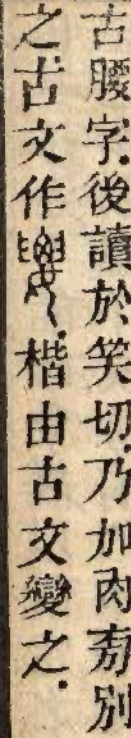 古腰字。後讀於笑切。乃加肉㫄別
之古文作𦥼。楷由古文變之。